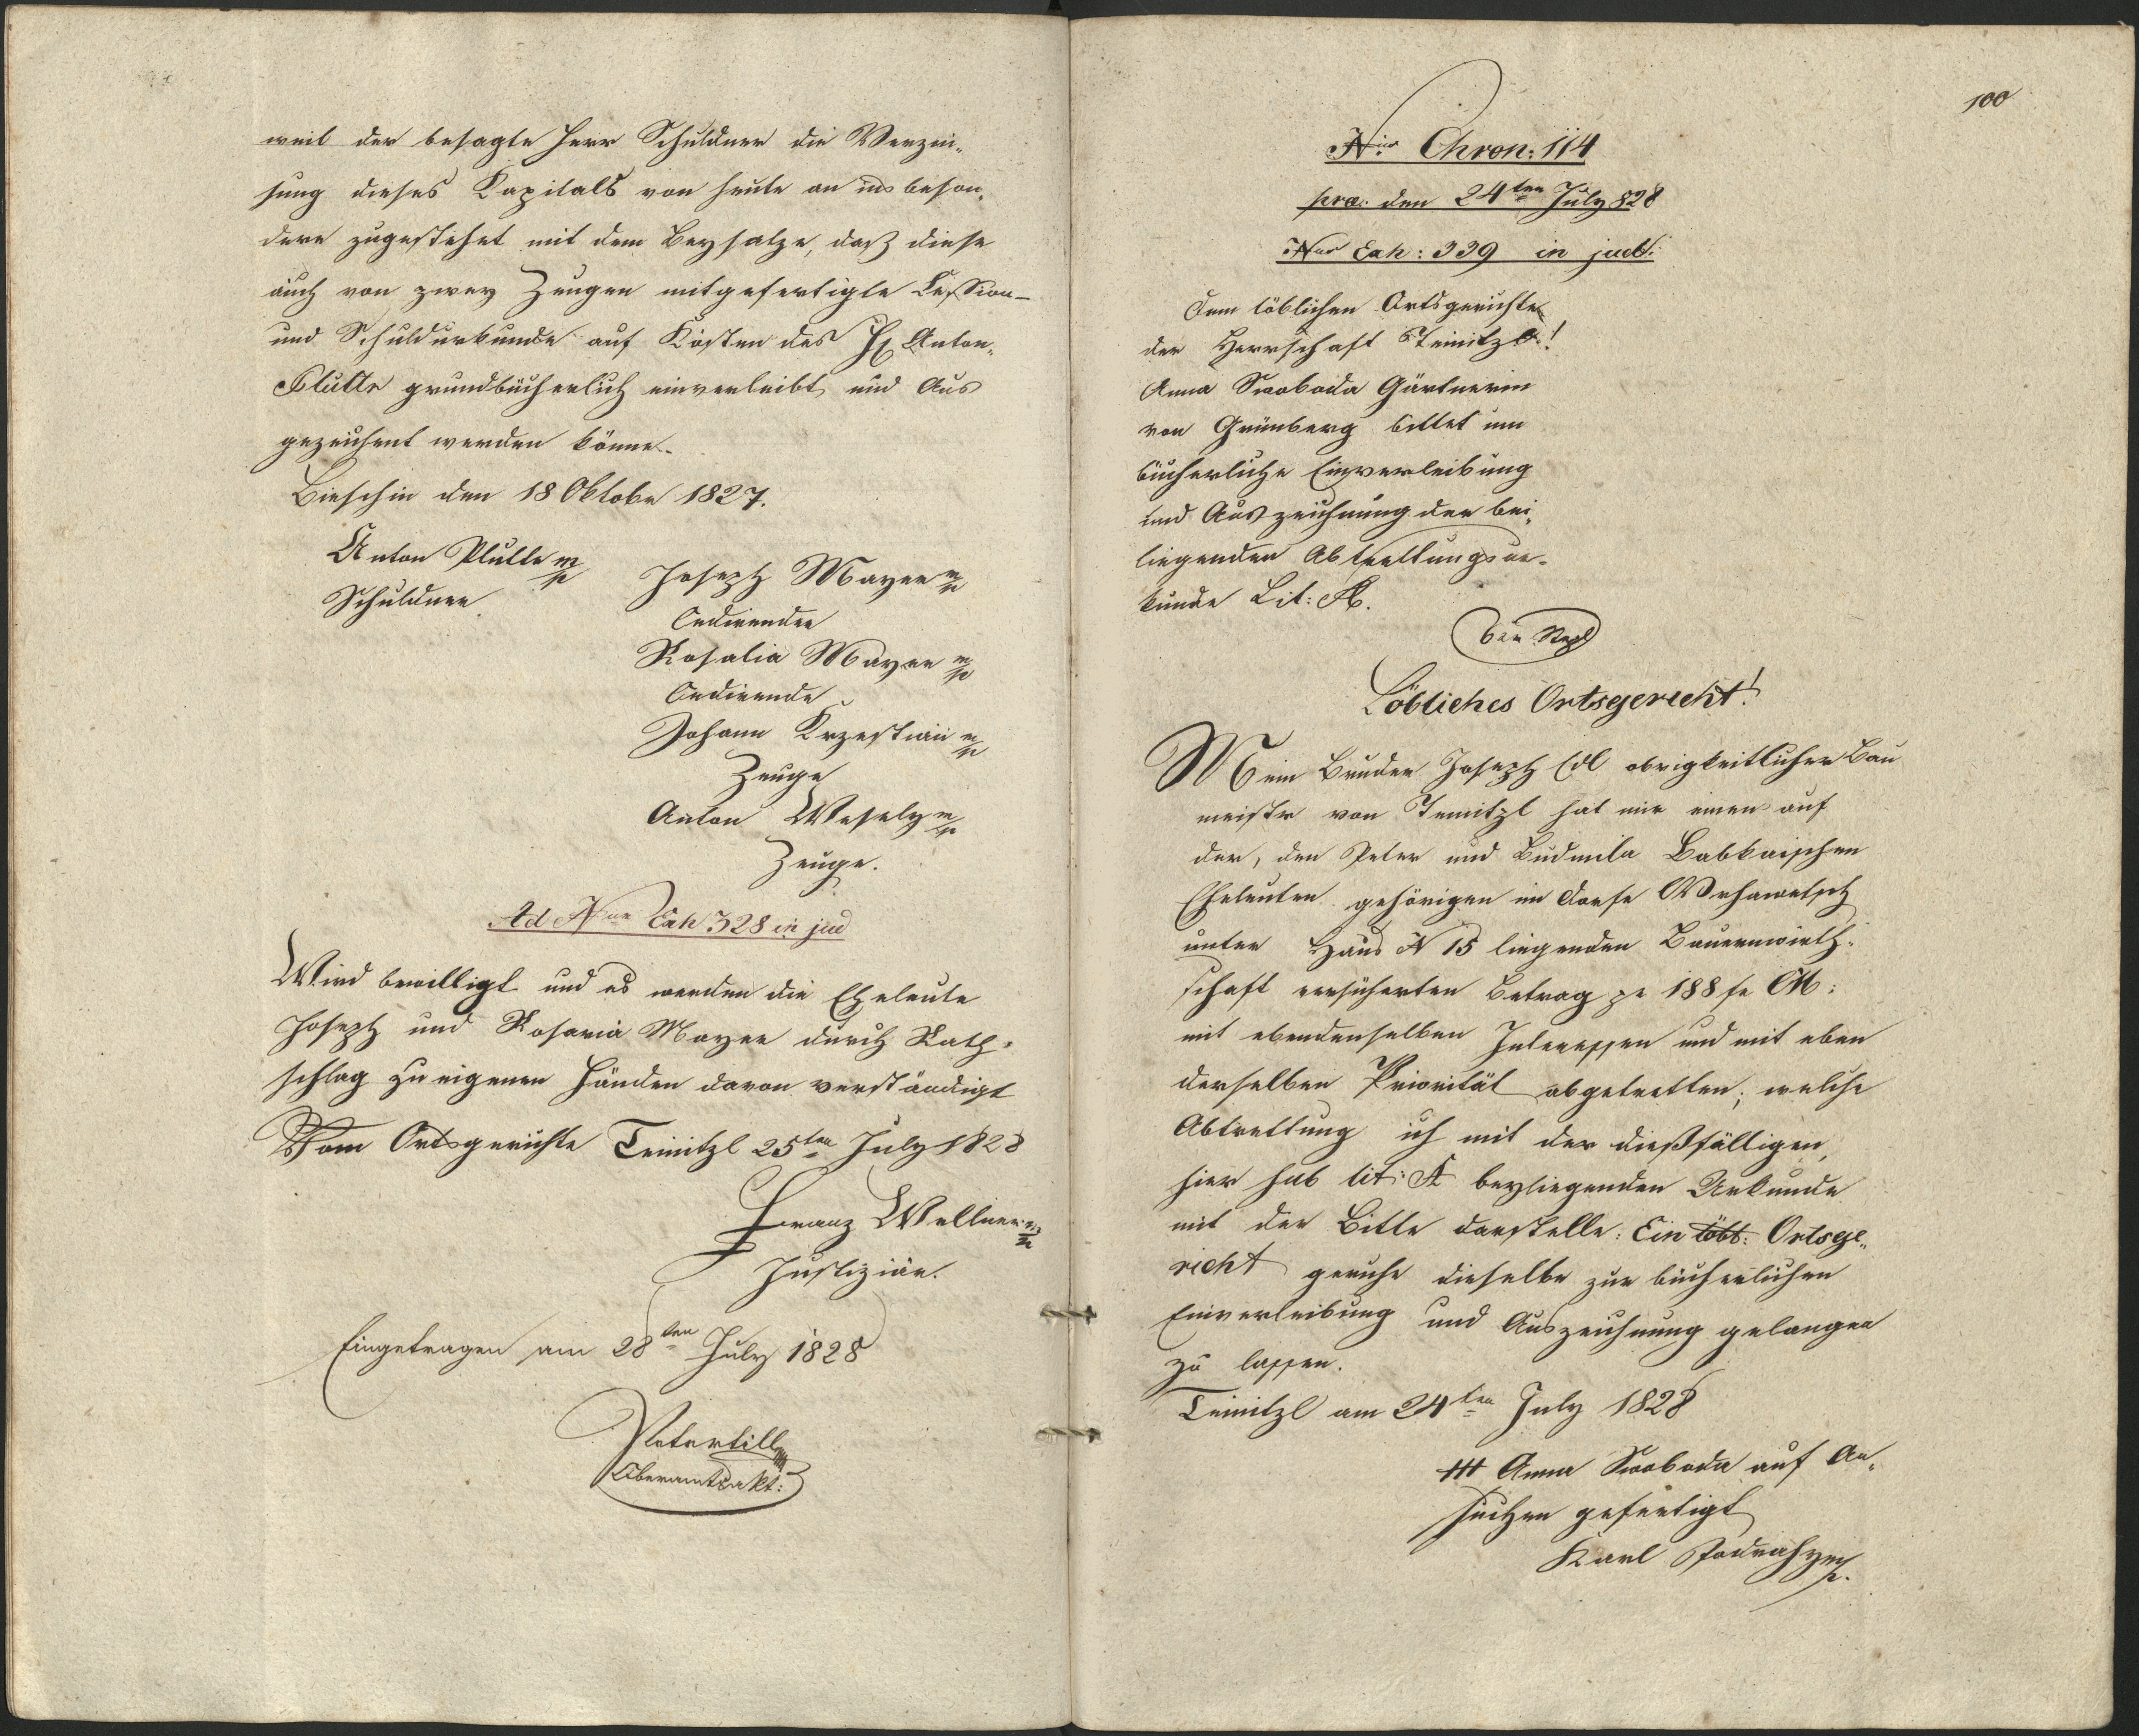 weil der besagte Herr Schuldner die Verzin„
sung dieses Kapitals von heute an ins beson„
dere zugestehet mit dem Beysatze, daß diese
auch von zwey Zeugen mitgefertigte Cession-
und Schuldurkunde auf Kosten des H Anton
Plutte grundbücherlich einverleibt und Aus
gezeichent werden könne.
Bieschin den 18 Oktober 1827.
Anton Plutte mp
Schuldner
Joseph Mayer mp
Cedirender
Rosalia Mayer mp
Cedirende
Johann mp
Zeuge
Anton Wesely mp
Zeuge.
Ad Nur Exh 328 in jud
Wird bewilligt und es werden die Eheleute
Joseph und Rosaria Mayer durch Rath„
schlag zu eigenen Händen davon verständigt
Vom Ortsgerichte Teinitzl 25ten July 1828
Franz Wellner mp
Justiziär.
Eingetragen am 28ten July 1828
Oberamtsakt:
100
Nro Chron: 114
præ: den 24ten July 828
Nro Exh: 339 in jud:
Dem löblichen Ortsgerichte
der Herrschaft Teinitzl!
Anna Swoboda Gärtnerin
von Grünberg bittet um
bücherliche Einverleibung
und Auszeichnung der bei„
liegenden Abtrettungsur„
kunde Lit: A.
6 xr Stpl
Löbliches Ortsgericht!
Mein Bruder Joseph Edl obrigkeitlicher Bau
meister von Teinitzl hat mir einen auf
der, den Peter und Ludmila Babkaischen
Eheleuten gehörigen im Dorfe
unter Haus N 15 liegenden Bauernwirth„
schaft versicherten Betrag pr 188 fr CM:
mit ebendenselben Interessen und mit eben
derselben Priorität abgetretten; welche
Abtrettung ich mit der dießfälligen,
hier sub lit: A beyliegenden Urkunde
mit der Bitte darstelle: Ein löbl: Ortsge„
richt geruhe dieselbe zur bücherlichen
Einverleibung und Auszeichnung gelangen
zu lassen.
Teinitzl am 24ten July 1828
+++ Anna Swoboda auf An„
suchen gefertigt
Karl